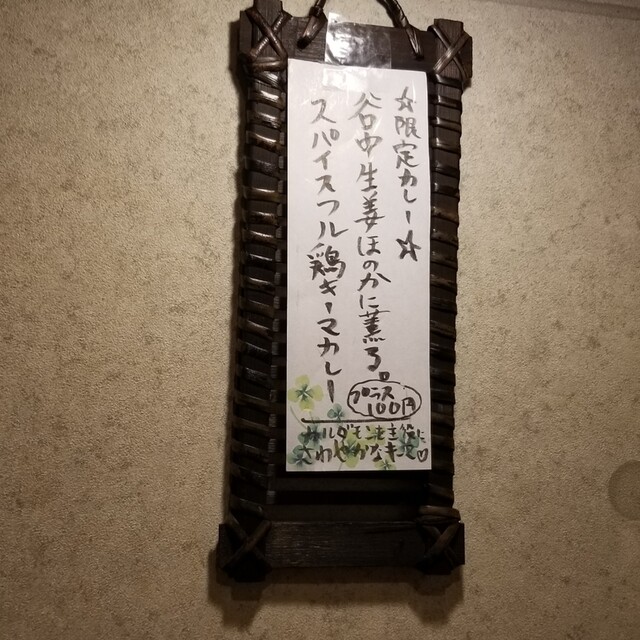 ☆限定カレー☆
谷中生姜ほのかに薫る。
スパイスフル鶏キーマカレー
プラス
100円
カルダモン主役に
さわやかなキーマ♡